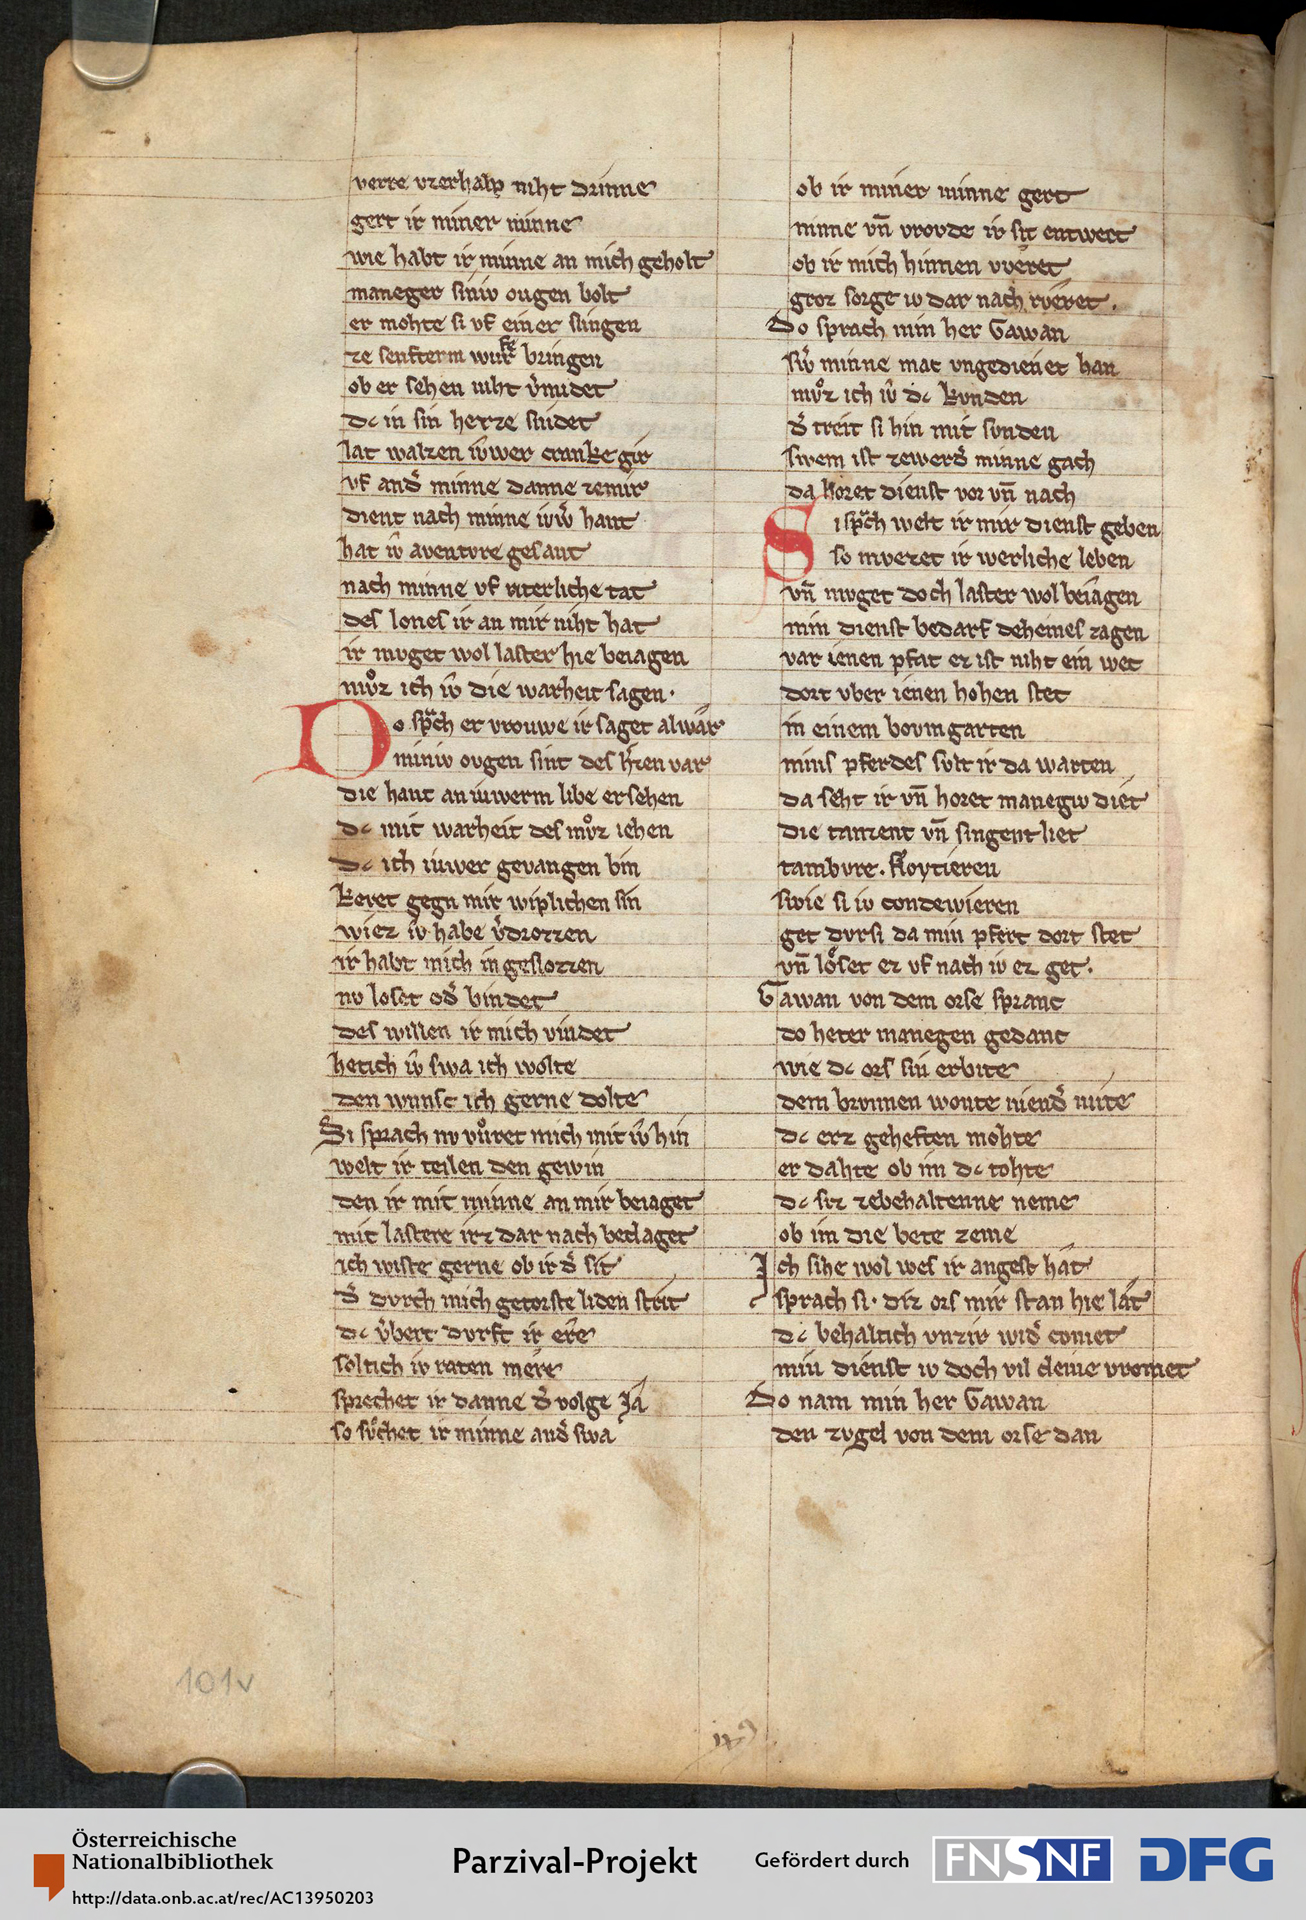 verre vzerhalp niht drinne
gert ir miner minne
wie habt ir minne an mich geholt
maneger siniv ougen bolt
er mohte si vf einer slingen
ze senfterm wurfe bringen
ob er sehen niht v̓midet
dc in sin herze snidet
lat walzen iw̓er cranke gir
vf and̓ minne danne zemir
dient nach minne iw̓ hant
hat iv̓ aventvre gesant
nach minne vf riterliche tat
des lones ir an mir niht hat
ir mvget wol laster hie beiagen
mvͦz ich iv̓ die warheit sagen·
Do sp̾ch er vrouwe ir saget al war
miniv ovgen sint des h̓zen var
die hant an iuwerm libe ersehen
dc mit warheit des mvͦz iehen
dc ich iuwer gevangen bin
keret gegn mir wiplichen sin
wiez iv̓ habe v̓drozzen
ir habt mich ingeslozzen
nv loset od̓ bindet
des willen ir mich vindet
hetich iv̓ swa ich wolte
den wunsc ich gerne dolte
Si sprach nv vuͦret mich mit iv̓ hin
welt ir teilen den gewin
den ir mit minne an mir beiaget
mit lastere irz dar nach beclaget
ich wiste gerne ob ir d̓ sit
d̓ dvrch mich getorste liden strit
dc v̓bert dvrft ir ere
soltich iv raten mere
sprechet ir danne d̓ volge Ja
so svͦchet ir minne and̓ swa
ob ir miner minne gert
minne vn̄ vrovde ir sit entwert
ob ir mich hinnen vveret
groz sorge iv dar nach rveret.
Do sprach min her Gawan
sw̓ minne mac vngedienet han
mvͦz ich iv̓ dc kvnden
d̓ treit si hin mit svnden
swem ist zewerd̓ minne gach
da horet dienst vor vn̄ nach
Si sp̾ch welt ir mir dienst geben
so mvezet ir werliche leben
vn̄ mvget doch laster wol beiagen
min dienst bedarf deheines zagen
var ienen pfat ez ist niht ein wec
dort vber ienen hohen stec
in einem bovmgarten
mins pferdes svlt ir da warten
da seht ir vn̄ horet manegiv diet
die tanzent vn̄ singent liet
tambvre. floytieren
swie si iv condewieren
get dvrsi da min pfert dort stet
vn̄ loͤset ez vf nach iv ez get.
Gawan von dem orse spranc
do heter manegen gedanc
wie dc ors sin erbite
dem brvnnen wonte niend̓ mite
dc erz geheften mohte
er dahte ob im dc tohte
dc siz zebehaltenne neme
ob im die bete zeme
Ich sihe wol wes ir angest hat
sprach si· diz ors mir stan hie lat
dc behaltich vnzir wid̓ comet
min dienst iv doch vil cleine vromet
Do nam min her Gawan
den zvgel von dem orse dan
101v
Österreichische
Nationalbibliothek
http://data.onb.ac.at/rec/AC13950203
Parzival-Projekt
Gefördert durch
FNSNF
DFG